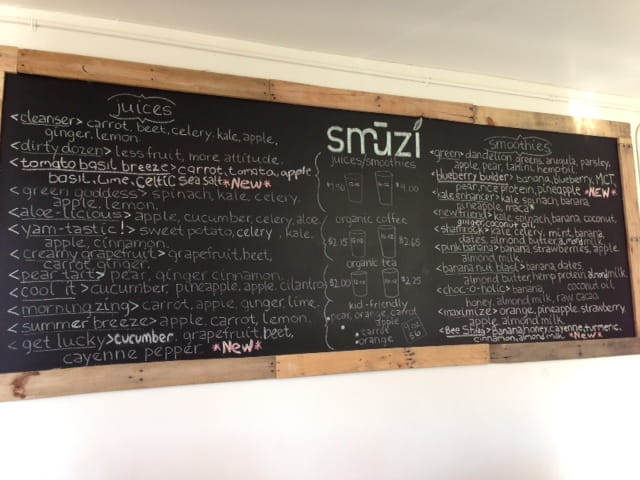 juices
<cleanser> carrot, beet, celery, kale, apple,
ginger, lemon.
<dirty dozen> less fruit, more attitude.
<tomato basil breeze> carrot, tomato, apple
basil, lime, Celtic Sea salt *New*
<green goddess> spinach, kale, celery,
apple, lemon.
<aloe-licious> apple, cucumber, celery, aloe.
<yam-tastic!> sweet potato, celery, kale,
apple, cinnamon.
<creamy grapefruit> grapefruit, beet,
carrot, ginger.
<pear arts> pear, ginger cinnamon.
<cool it> cucumber, pineapple, apple, cilantro
<morning zing> carrot, apple, ginger, lime.
<summer breeze> apple, carrot, lemon.
<get lucky> cucumber, grapefruit, beet,
cayenne pepper. *New*
smūzi
juices/smoothies
$7.50
$9.00
organic coffee
$2.15
$2.65
organic tea
$2.00
$2.25
kid-friendly
pear, orange, carrot
apple
carrot
orange
smoothies
<green> dandelion greens, arugula, parsley,
apple, pear, tahini, hemp oil.
<blueberry builder> banana, blueberry, MCT,
pear, rice protein, pineapple *NEW*
<kale enhancer> kale, spinach, banana,
pineapple, maca
<new friend> kale, spinach, banana, coconut,
ginger, coconut oil
<shamrock> kale, celery, mint, banana,
dates, almond butter, almond milk.
<pink banana> banana, strawberries, apple,
almond milk.
<banana nut blast> banana, dates,
almond butter, hemp protein, almond milk
<choc-o-holic> banana, coconut oil,
honey, almond milk, raw cacao.
<maximize> orange, pineapple, strawberry,
apple, almond milk.
<Bee Sting> banana, honey, cayenne, turmeric,
cinnamon, almond milk. *New*